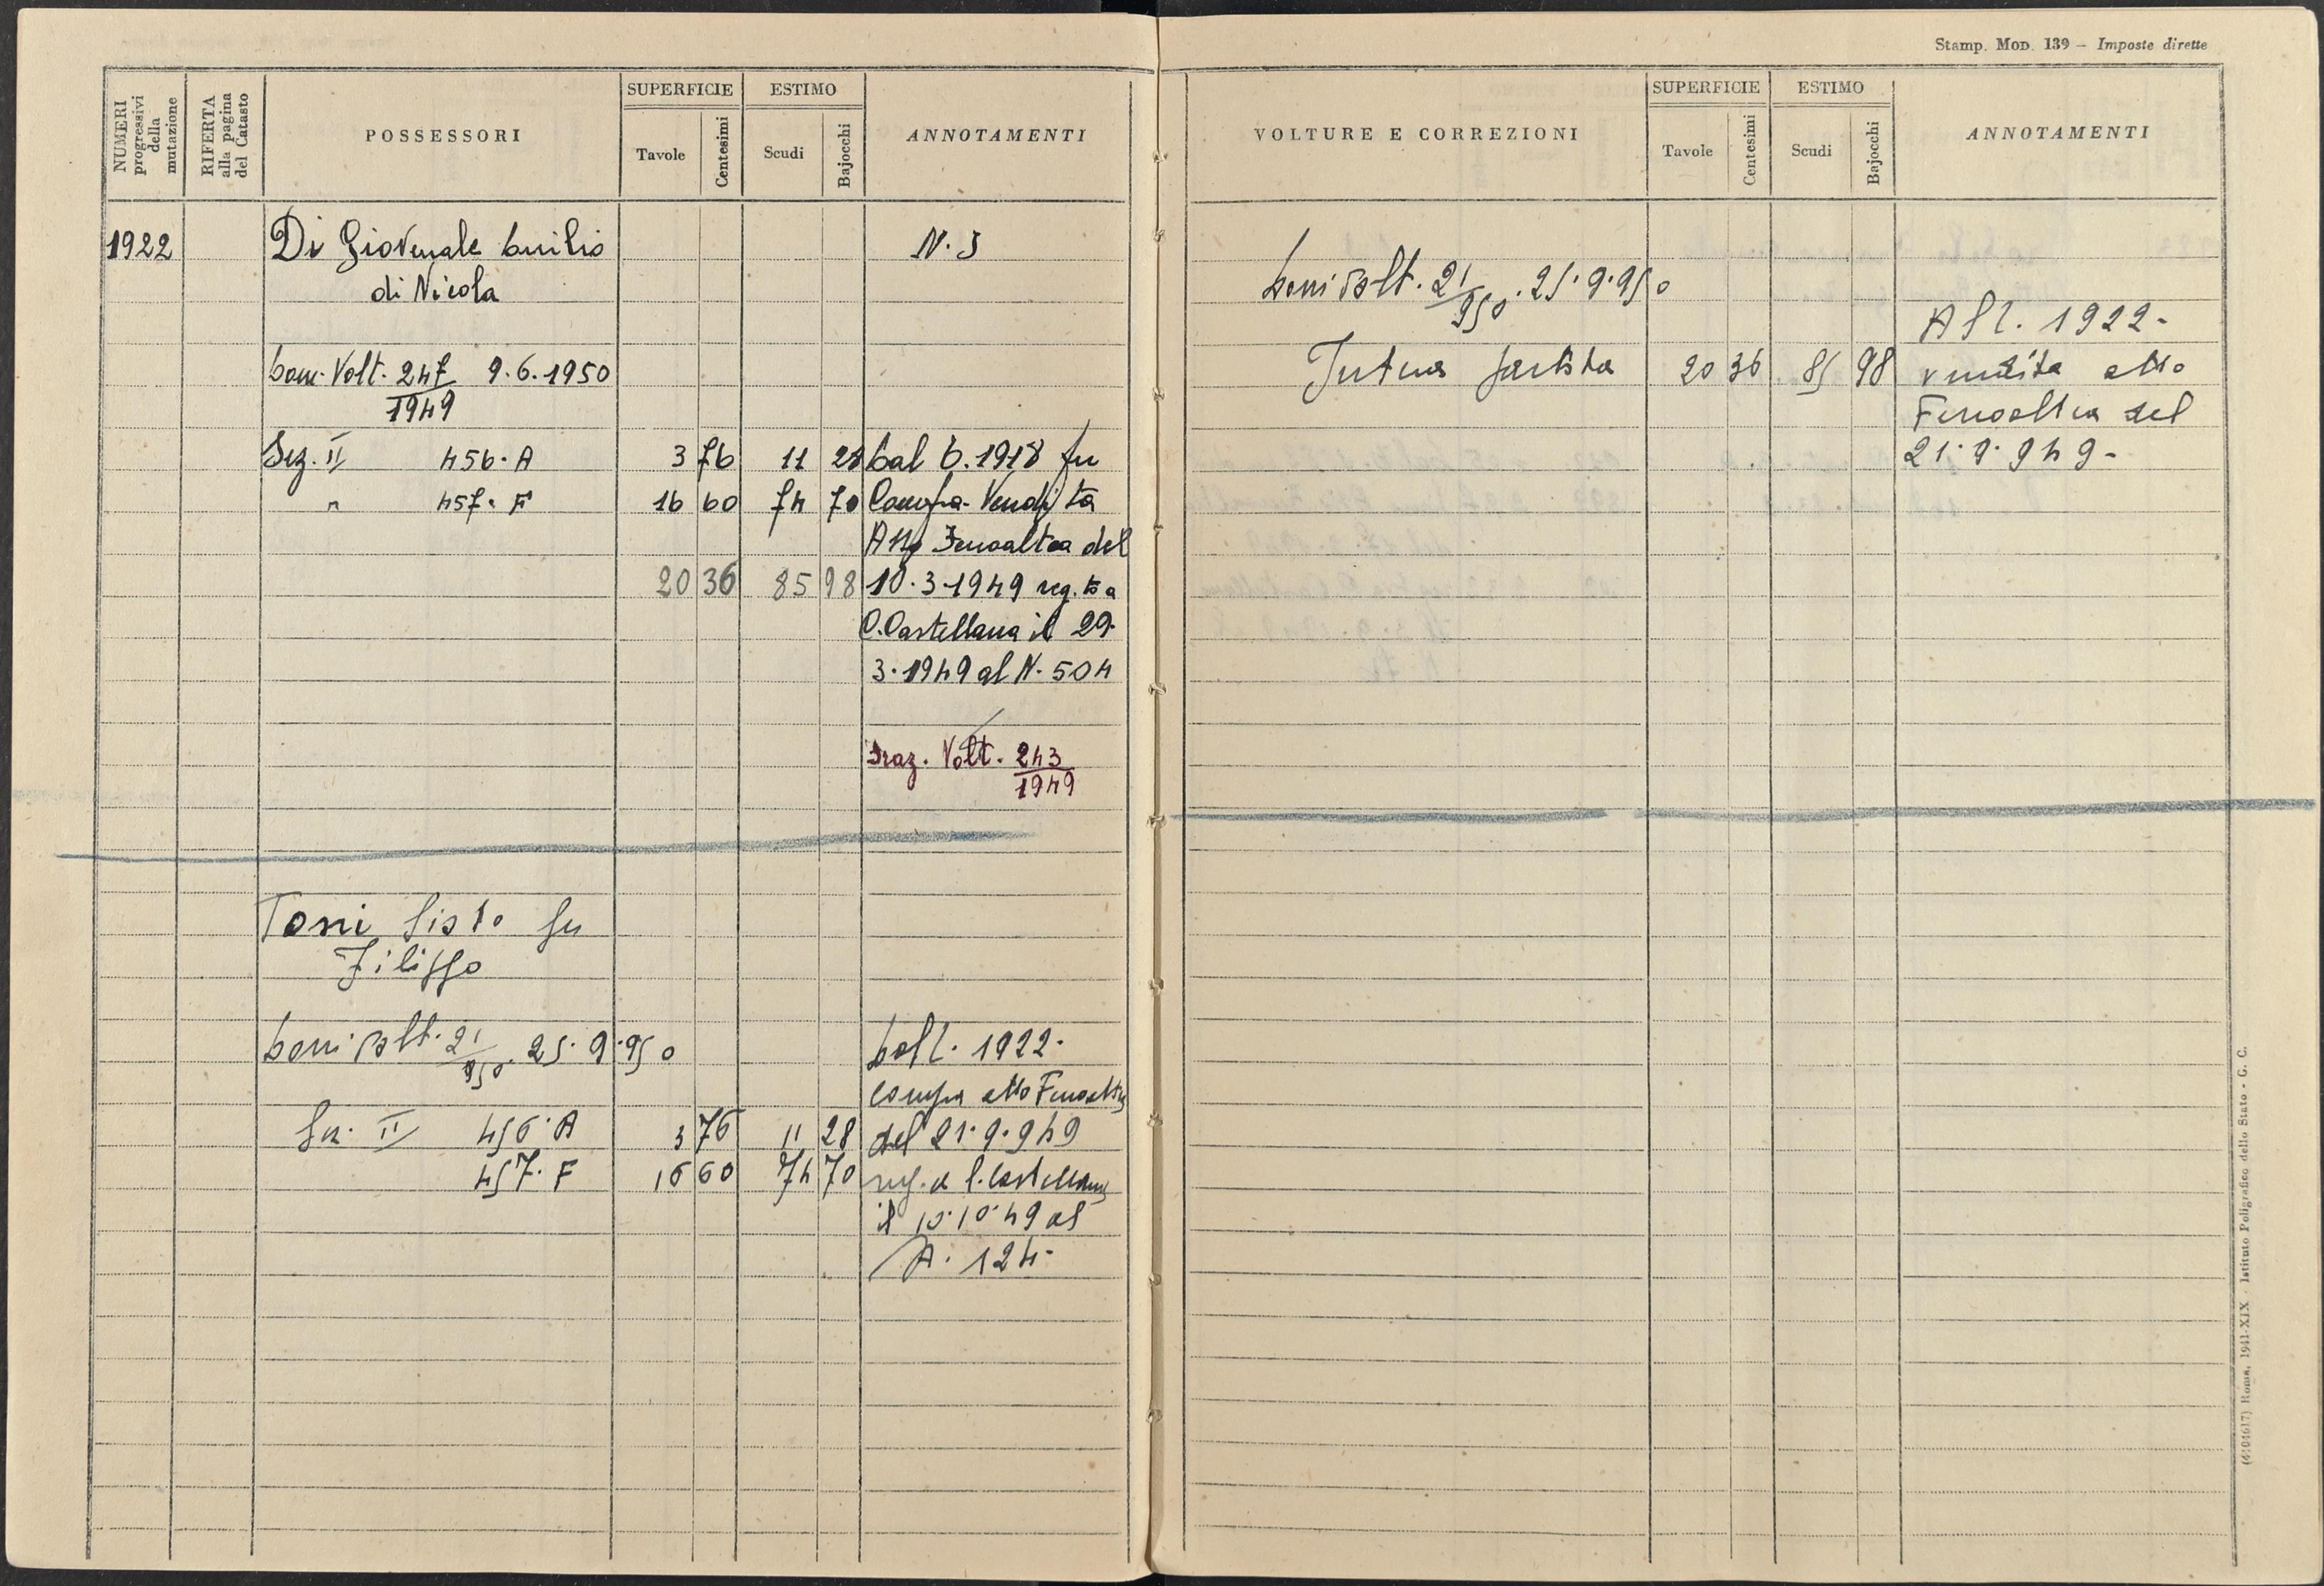 Stamp. Mod. 139 – Imposte dirette
NUMERI progressivi della mutazione
RIFERTA alla pagina del Catasto
POSSESSORI
SUPERFICIE
Tavole
Centesimi
ESTIMO
Scudi
Bajocchi
ANNOTAMENTI
VOLTURE E CORREZIONI
SUPERFICIE
Tavole
Centesimi
ESTIMO
Scudi
Bajocchi
ANNOTAMENTI
1922
Di Giovenale Emilio
N. 5
di Nicola
Volt. 247/1949 9.6.1950
Sez. II 456. A 3 76 11 28
Dal C. 1918 fu
" 457. F 16 60 74 70
Compra-Vendita
Atto Fenoaltea del
20 36 85 98
10.3.1949 reg. to a
C. Castellana il 29.
3.1949 al N. 504
Fraz. Volt. 243/1949
Toni Sisto fu
Filippo
Volt. 21/950. 25.9.950
Dall. 1922.
compra atto Fenoaltea
Sez. II 456. A 3 76 11 28
del 21.9.949
457. F 16 60 74 70
reg. a C. Castellana
il 10.10.49 al
N. 124.
Volt. 21/950. 25.9.950
All. 1922.
Intera partita 20 36 85 98
vendita atto
Fenoaltea del
21.9.949.
(4404617) Roma, 1941-XIX - Istituto Poligrafico dello Stato - G. C.